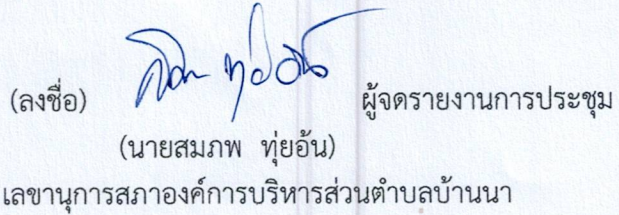 (ลงชื่อ) ผู้จดรายงานการประชุม
(นายสมภพ ทุ่ยอ้น)
เลขานุการสภาองค์การบริหารส่วนตำบลบ้านนา